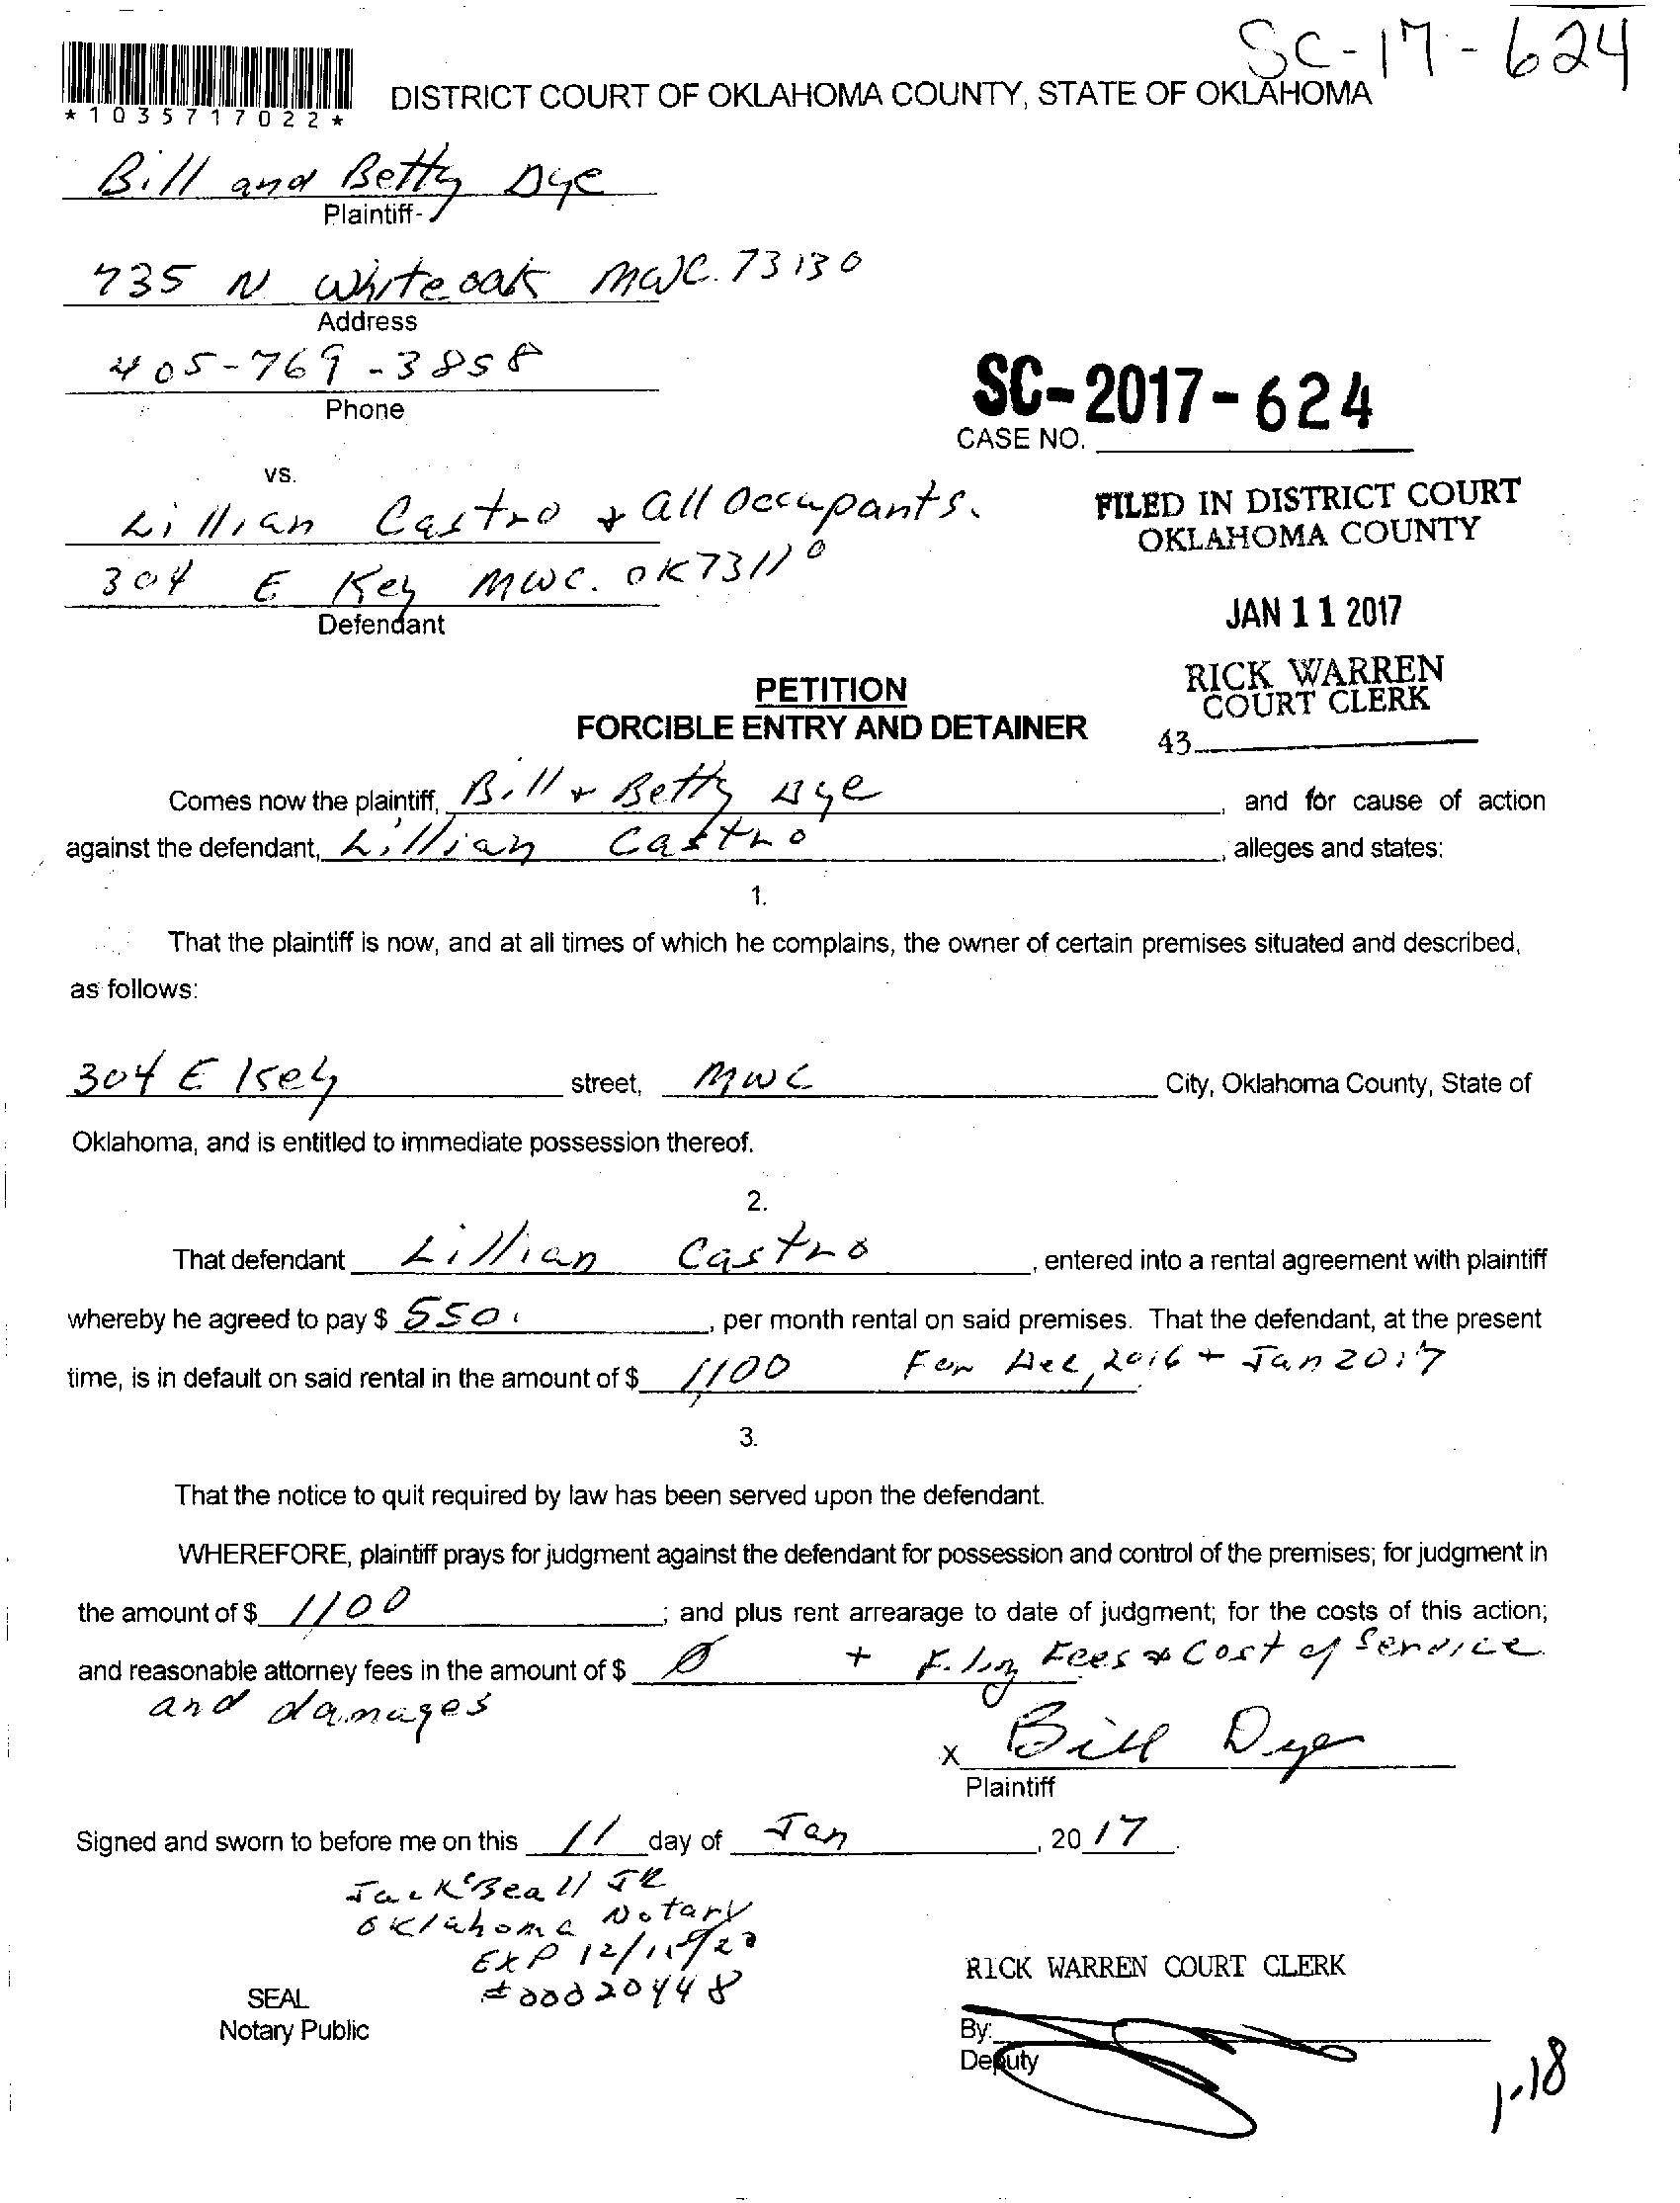 SC-17-624
*1035717022*
DISTRICT COURT OF OKLAHOMA COUNTY, STATE OF OKLAHOMA
Bill and Betty Dye
Plaintiff-
735 N Whiteoak MWC. 73130
Address
405-769-3858
Phone
SC-2017-624
CASE NO.
vs.
Lillian Castro + all Occupants.
304 E Key MWC. OK 73110
Defendant
FILED IN DISTRICT COURT
OKLAHOMA COUNTY
JAN 11 2017
RICK WARREN
COURT CLERK
43
PETITION
FORCIBLE ENTRY AND DETAINER
Comes now the plaintiff, Bill + Betty Dye, and for cause of action
against the defendant, Lillian Castro, alleges and states:
1.
That the plaintiff is now, and at all times of which he complains, the owner of certain premises situated and described,
as follows:
304 E Key street, MWC City, Oklahoma County, State of
Oklahoma, and is entitled to immediate possession thereof.
2.
That defendant Lillian Castro, entered into a rental agreement with plaintiff
whereby he agreed to pay $ 550., per month rental on said premises. That the defendant, at the present
time, is in default on said rental in the amount of $ 1,100 For Dec, 2016 + Jan 2017
3.
That the notice to quit required by law has been served upon the defendant.
WHEREFORE, plaintiff prays for judgment against the defendant for possession and control of the premises; for judgment in
the amount of $ 1100; and plus rent arrearage to date of judgment; for the costs of this action;
and reasonable attorney fees in the amount of $ 0 + Filing Fees + Cost of Service
and damages
x Bill Dye
Plaintiff
Signed and sworn to before me on this 11 day of Jan, 2017.
Jack Beall JR
Oklahoma Notary
EXP 12/15/20
#00020448
SEAL
Notary Public
RICK WARREN COURT CLERK
By:
Deputy
1-18